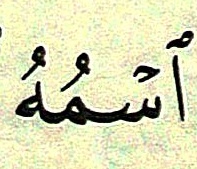 ٱسْمُهُ